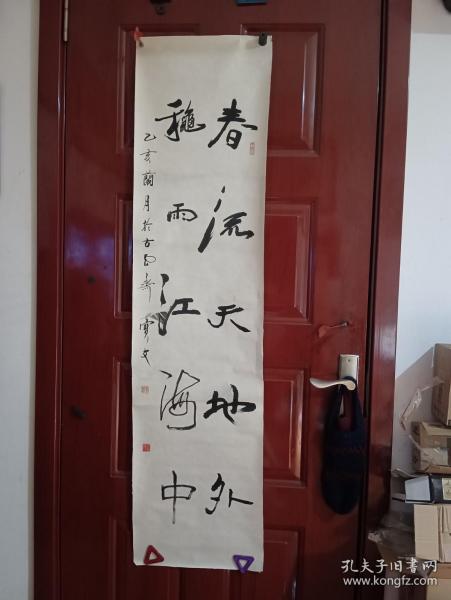 春流天地外
穐雨江海中
乙亥蘭月於古
齐寶文
孔夫子旧书网
www.kongfz.com